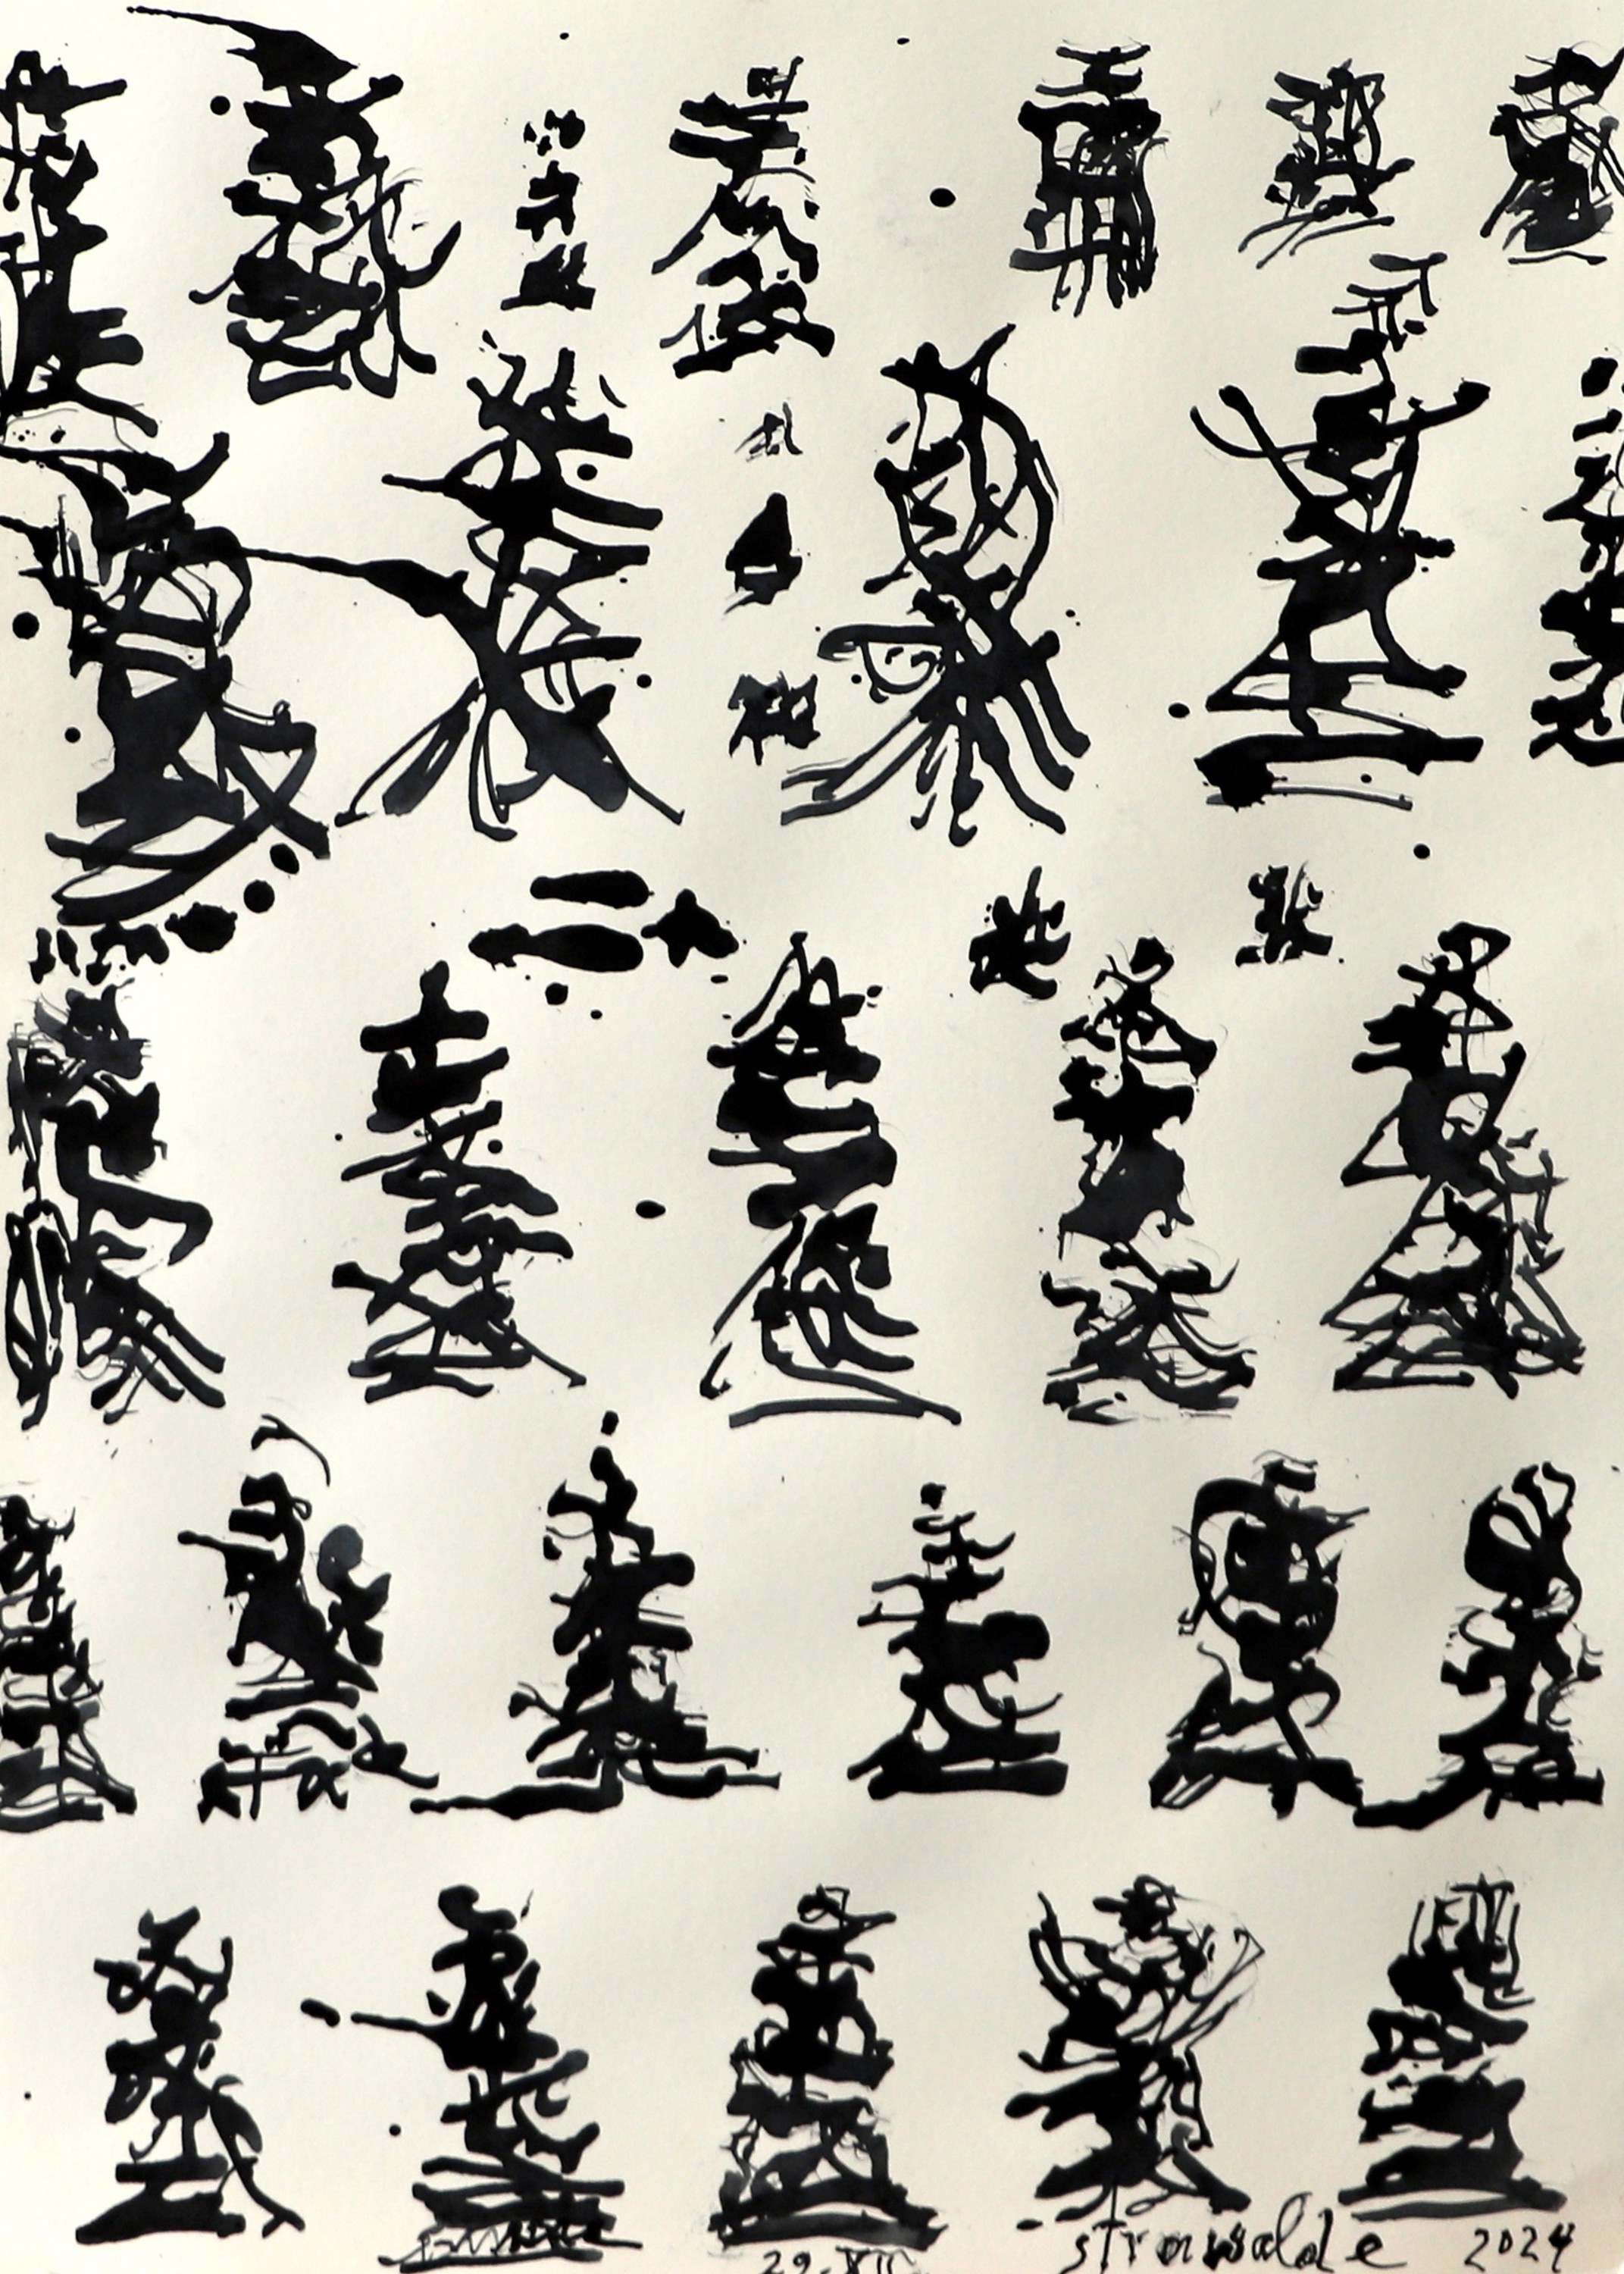 29.XII strawalde 2024